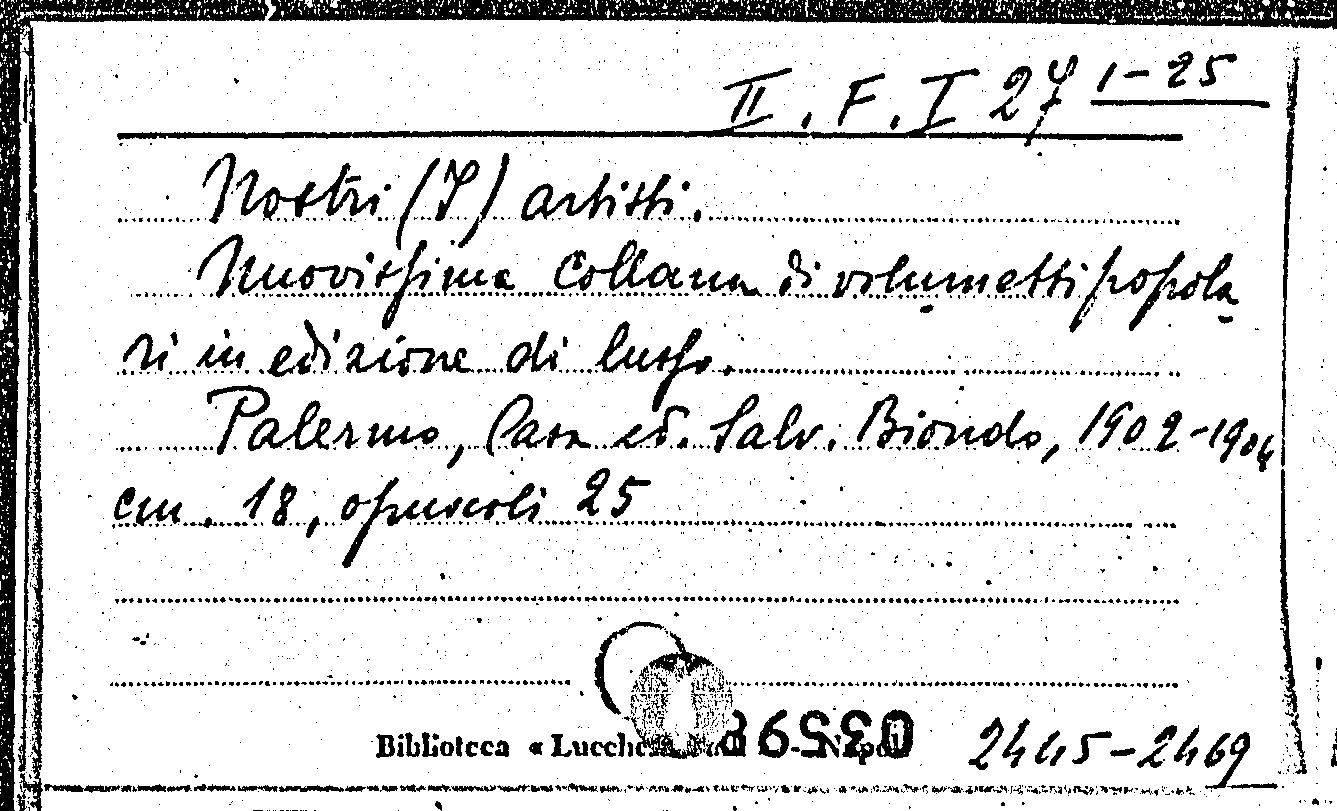 II. F. I 27 1-25
Nostri (I) artisti.
Nuovissima collana di volumetti popola-
ri in edizione di lusso.
Palermo, Casa ed. Salv. Biondo, 1902-1904
cm. 18, opuscoli 25
Biblioteca « Lucchesi - Napoli 2445-2469